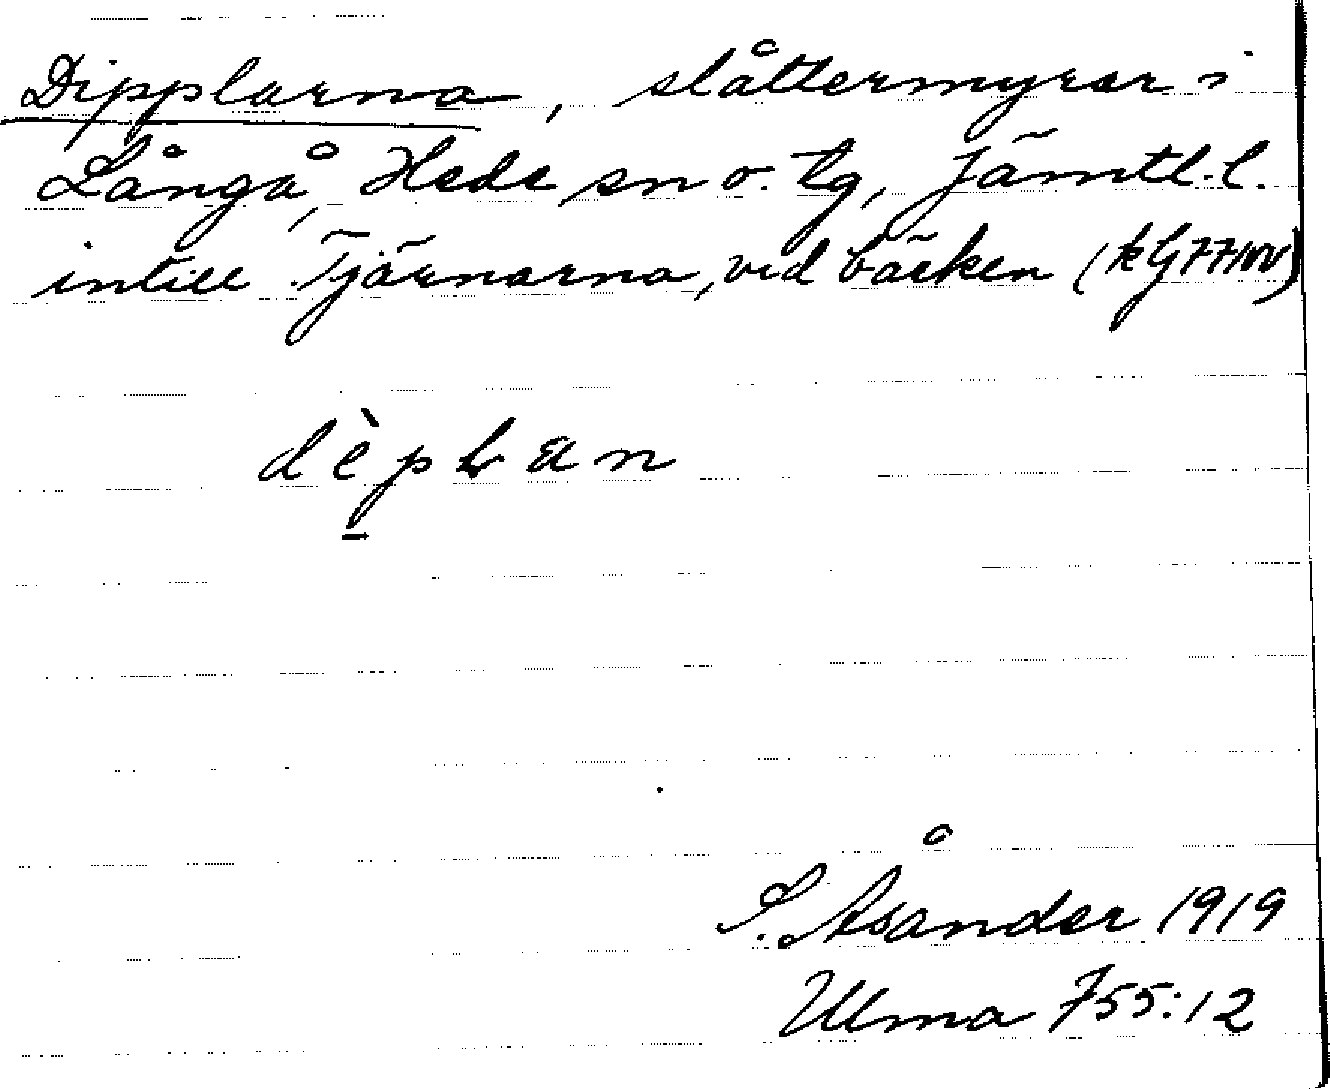 Dipplarna, slåttermyrar i
Långå, Hede sn o. tg, Jämtl. l.
intill Tjärnarna, vid bäcken
dèpLan
S. Åsander 1919
Ulma 755:12